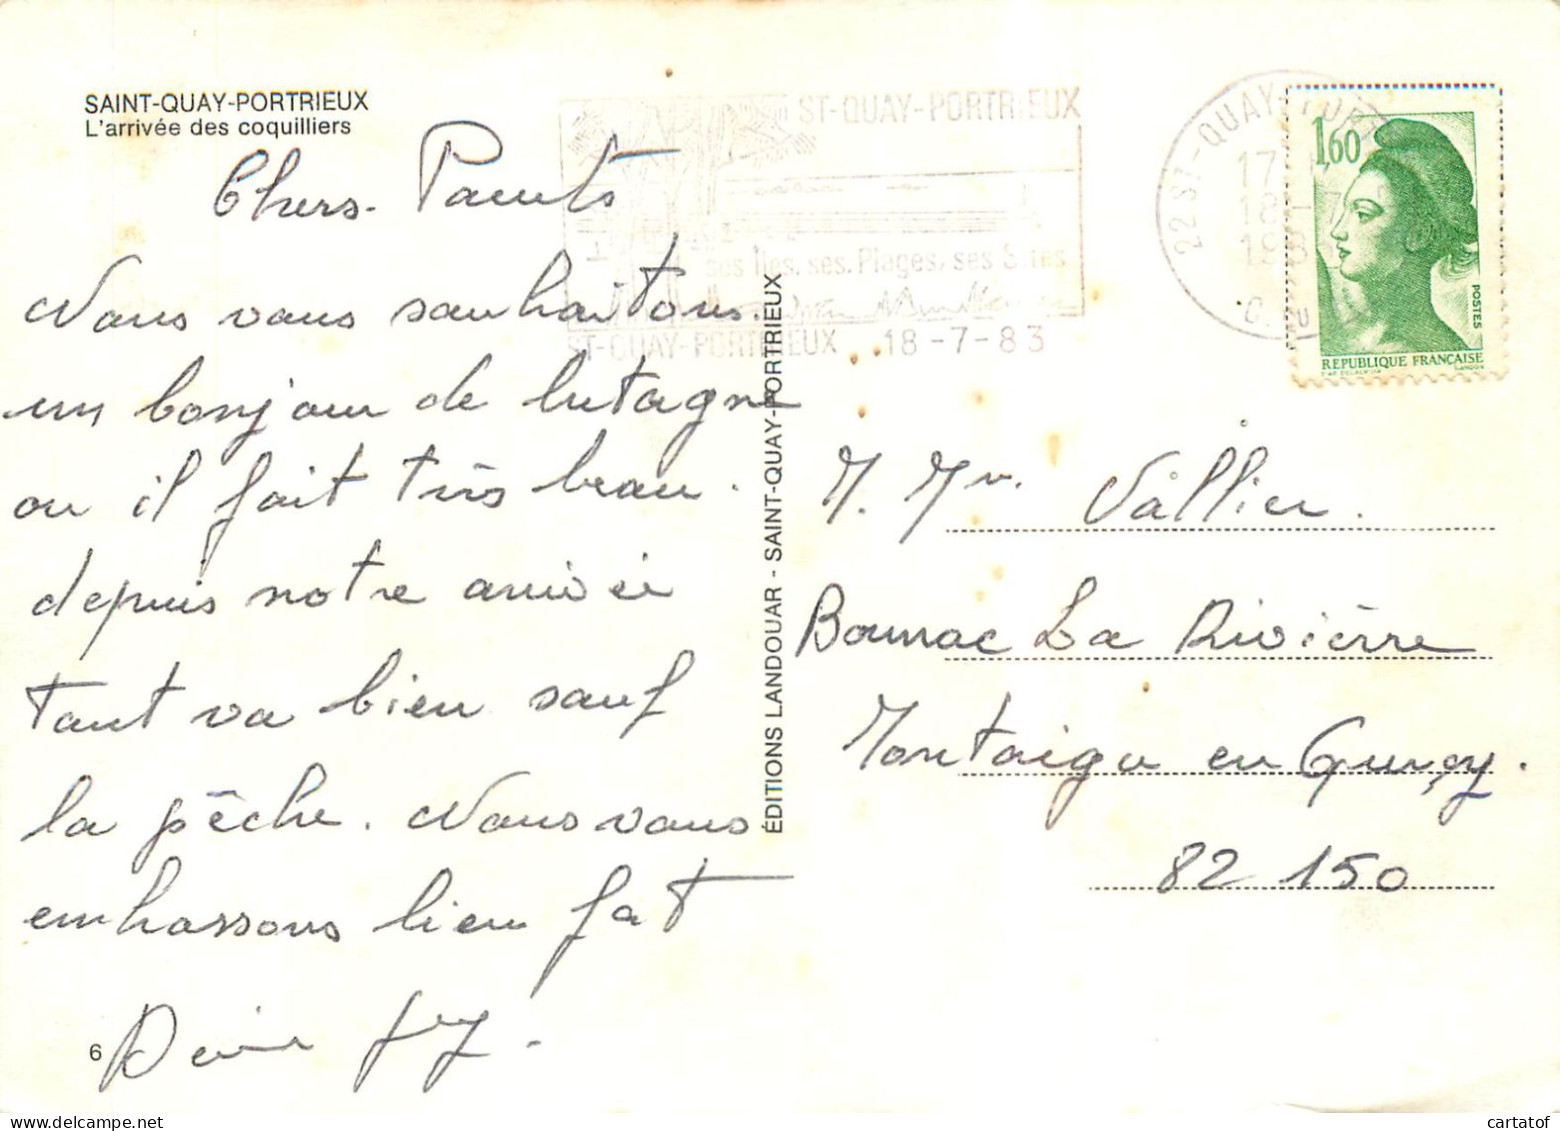 SAINT-QUAY-PORTRIEUX
L'arrivée des coquilliers
Chers Parents
Nous vous souhaitons
un bonjour de bretagne
ou il fait très beau.
depuis notre arrivée
tout va bien sauf
la pêche. Nous vous
embrassons bien fort
6
ÉDITIONS LANDOUAR - SAINT-QUAY-PORTRIEUX
ST-QUAY-PORTRIEUX
ses Îles, ses Plages, ses Sites
ST-QUAY-PORTRIEUX 18-7-83
22 ST-QUAY-
1,60
POSTES
REPUBLIQUE FRANÇAISE
M. Mr. Vallier.
Bournac La Rivièrre
Montaigu en Quercy.
82 150
cartatof